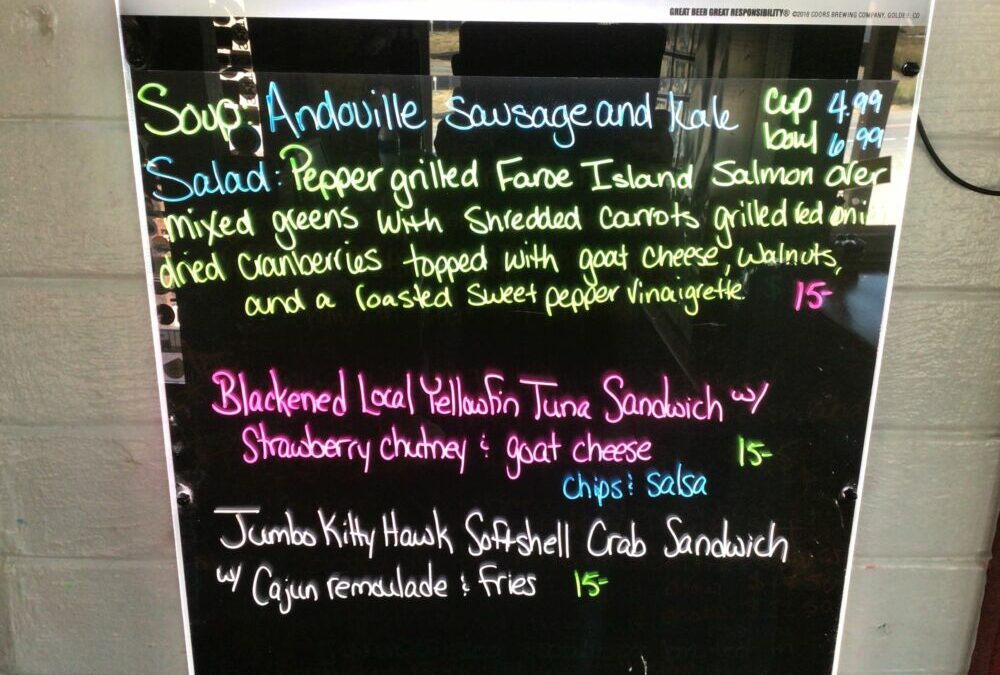 GREAT BEER GREAT RESPONSIBILITY® ©2018 COORS BREWING COMPANY, GOLDEN, CO
Soup: Andouille Sausage and Kale cup 4.99
bowl 6.99
Salad: Pepper grilled Faroe Island Salmon over
mixed greens with shredded carrots grilled red onion
dried cranberries topped with goat cheese, walnuts,
and a roasted sweet pepper vinaigrette. 15-
Blackened Local Yellowfin Tuna Sandwich w/
Strawberry chutney & goat cheese 15-
chips & salsa
Jumbo Kitty Hawk Softshell Crab Sandwich
w/ Cajun remoulade & fries 15-